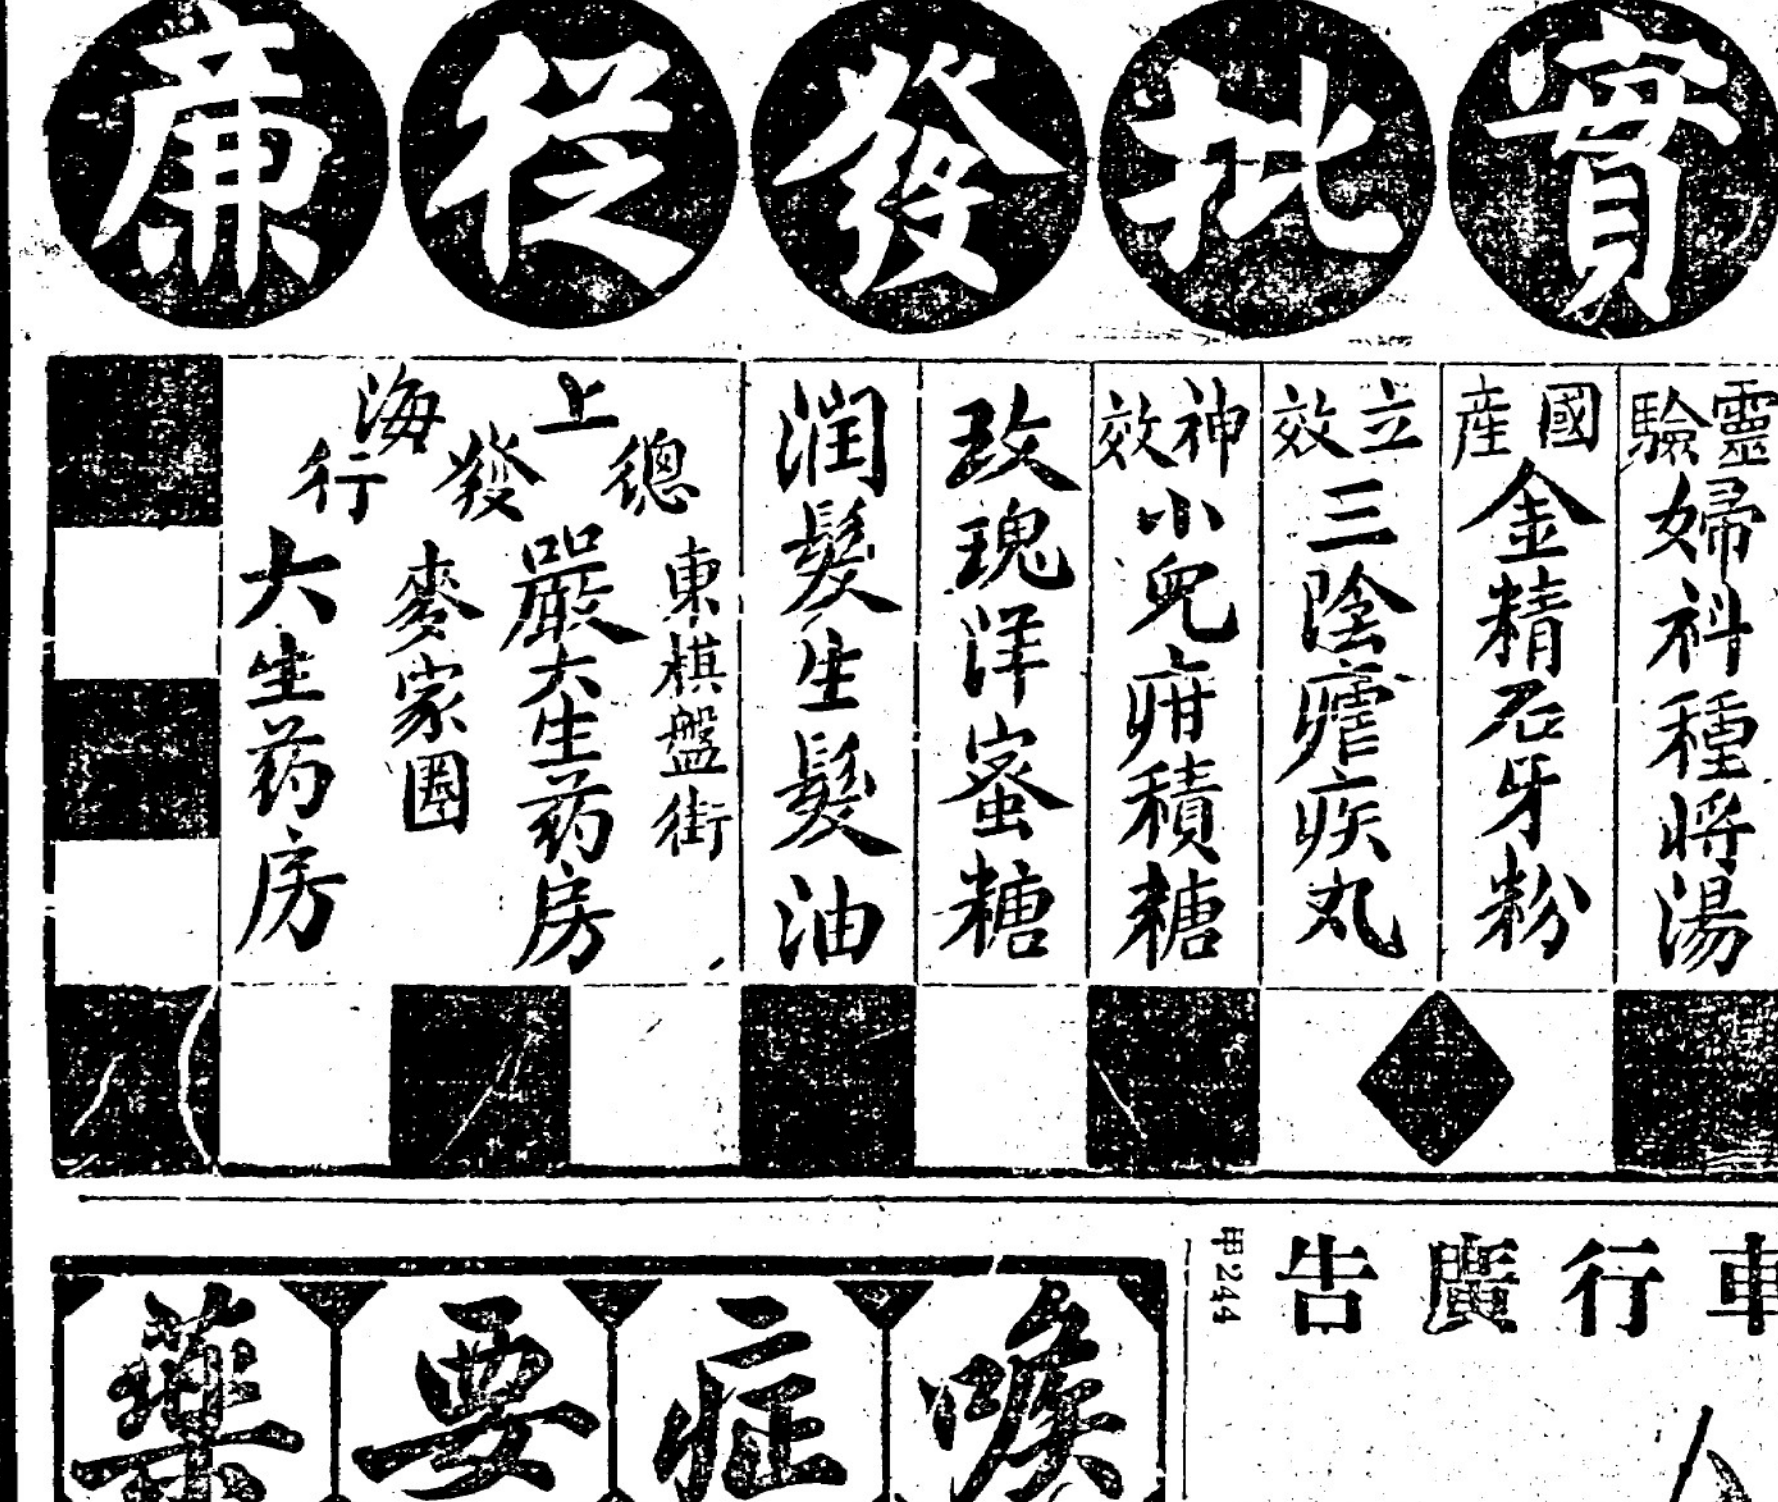 實批發從廉
靈驗婦科種將湯
國產金精石牙粉
立效三陰瘧疾丸
神效小兒疳積糖
玫瑰洋蜜糖
潤髮生髮油
上海
總發行
東棋盤街
嚴大生药房
麥家圈
大生药房
車行廣告
申244
喉症要藥